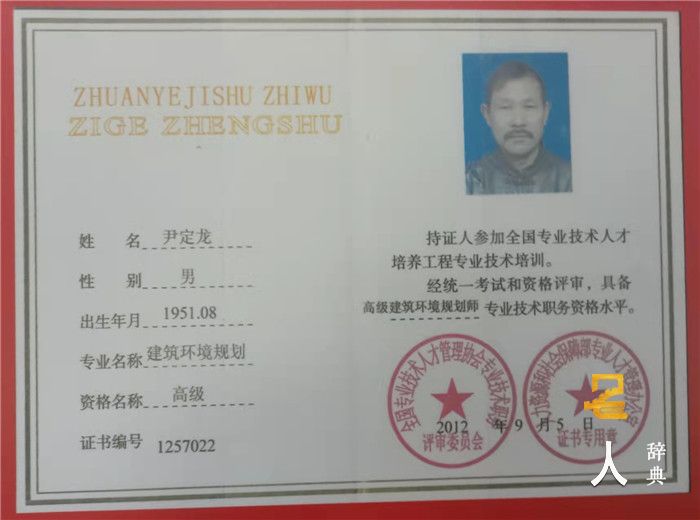 ZHUANYEJISHU ZHIWU
ZIGE ZHENGSHU
姓 名 尹定龙
性 别 男
出生年月 1951.08
专业名称 建筑环境规划
资格名称 高级
证书编号 1257022
持证人参加全国专业技术人才
培养工程专业技术培训。
经统一考试和资格评审，具备
高级建筑环境规划师 专业技术职务资格水平。
全国专业技术人才管理协会专业技术职务
评审委员会
证书专用章
2012 年 9 月 5 日
人 辞典